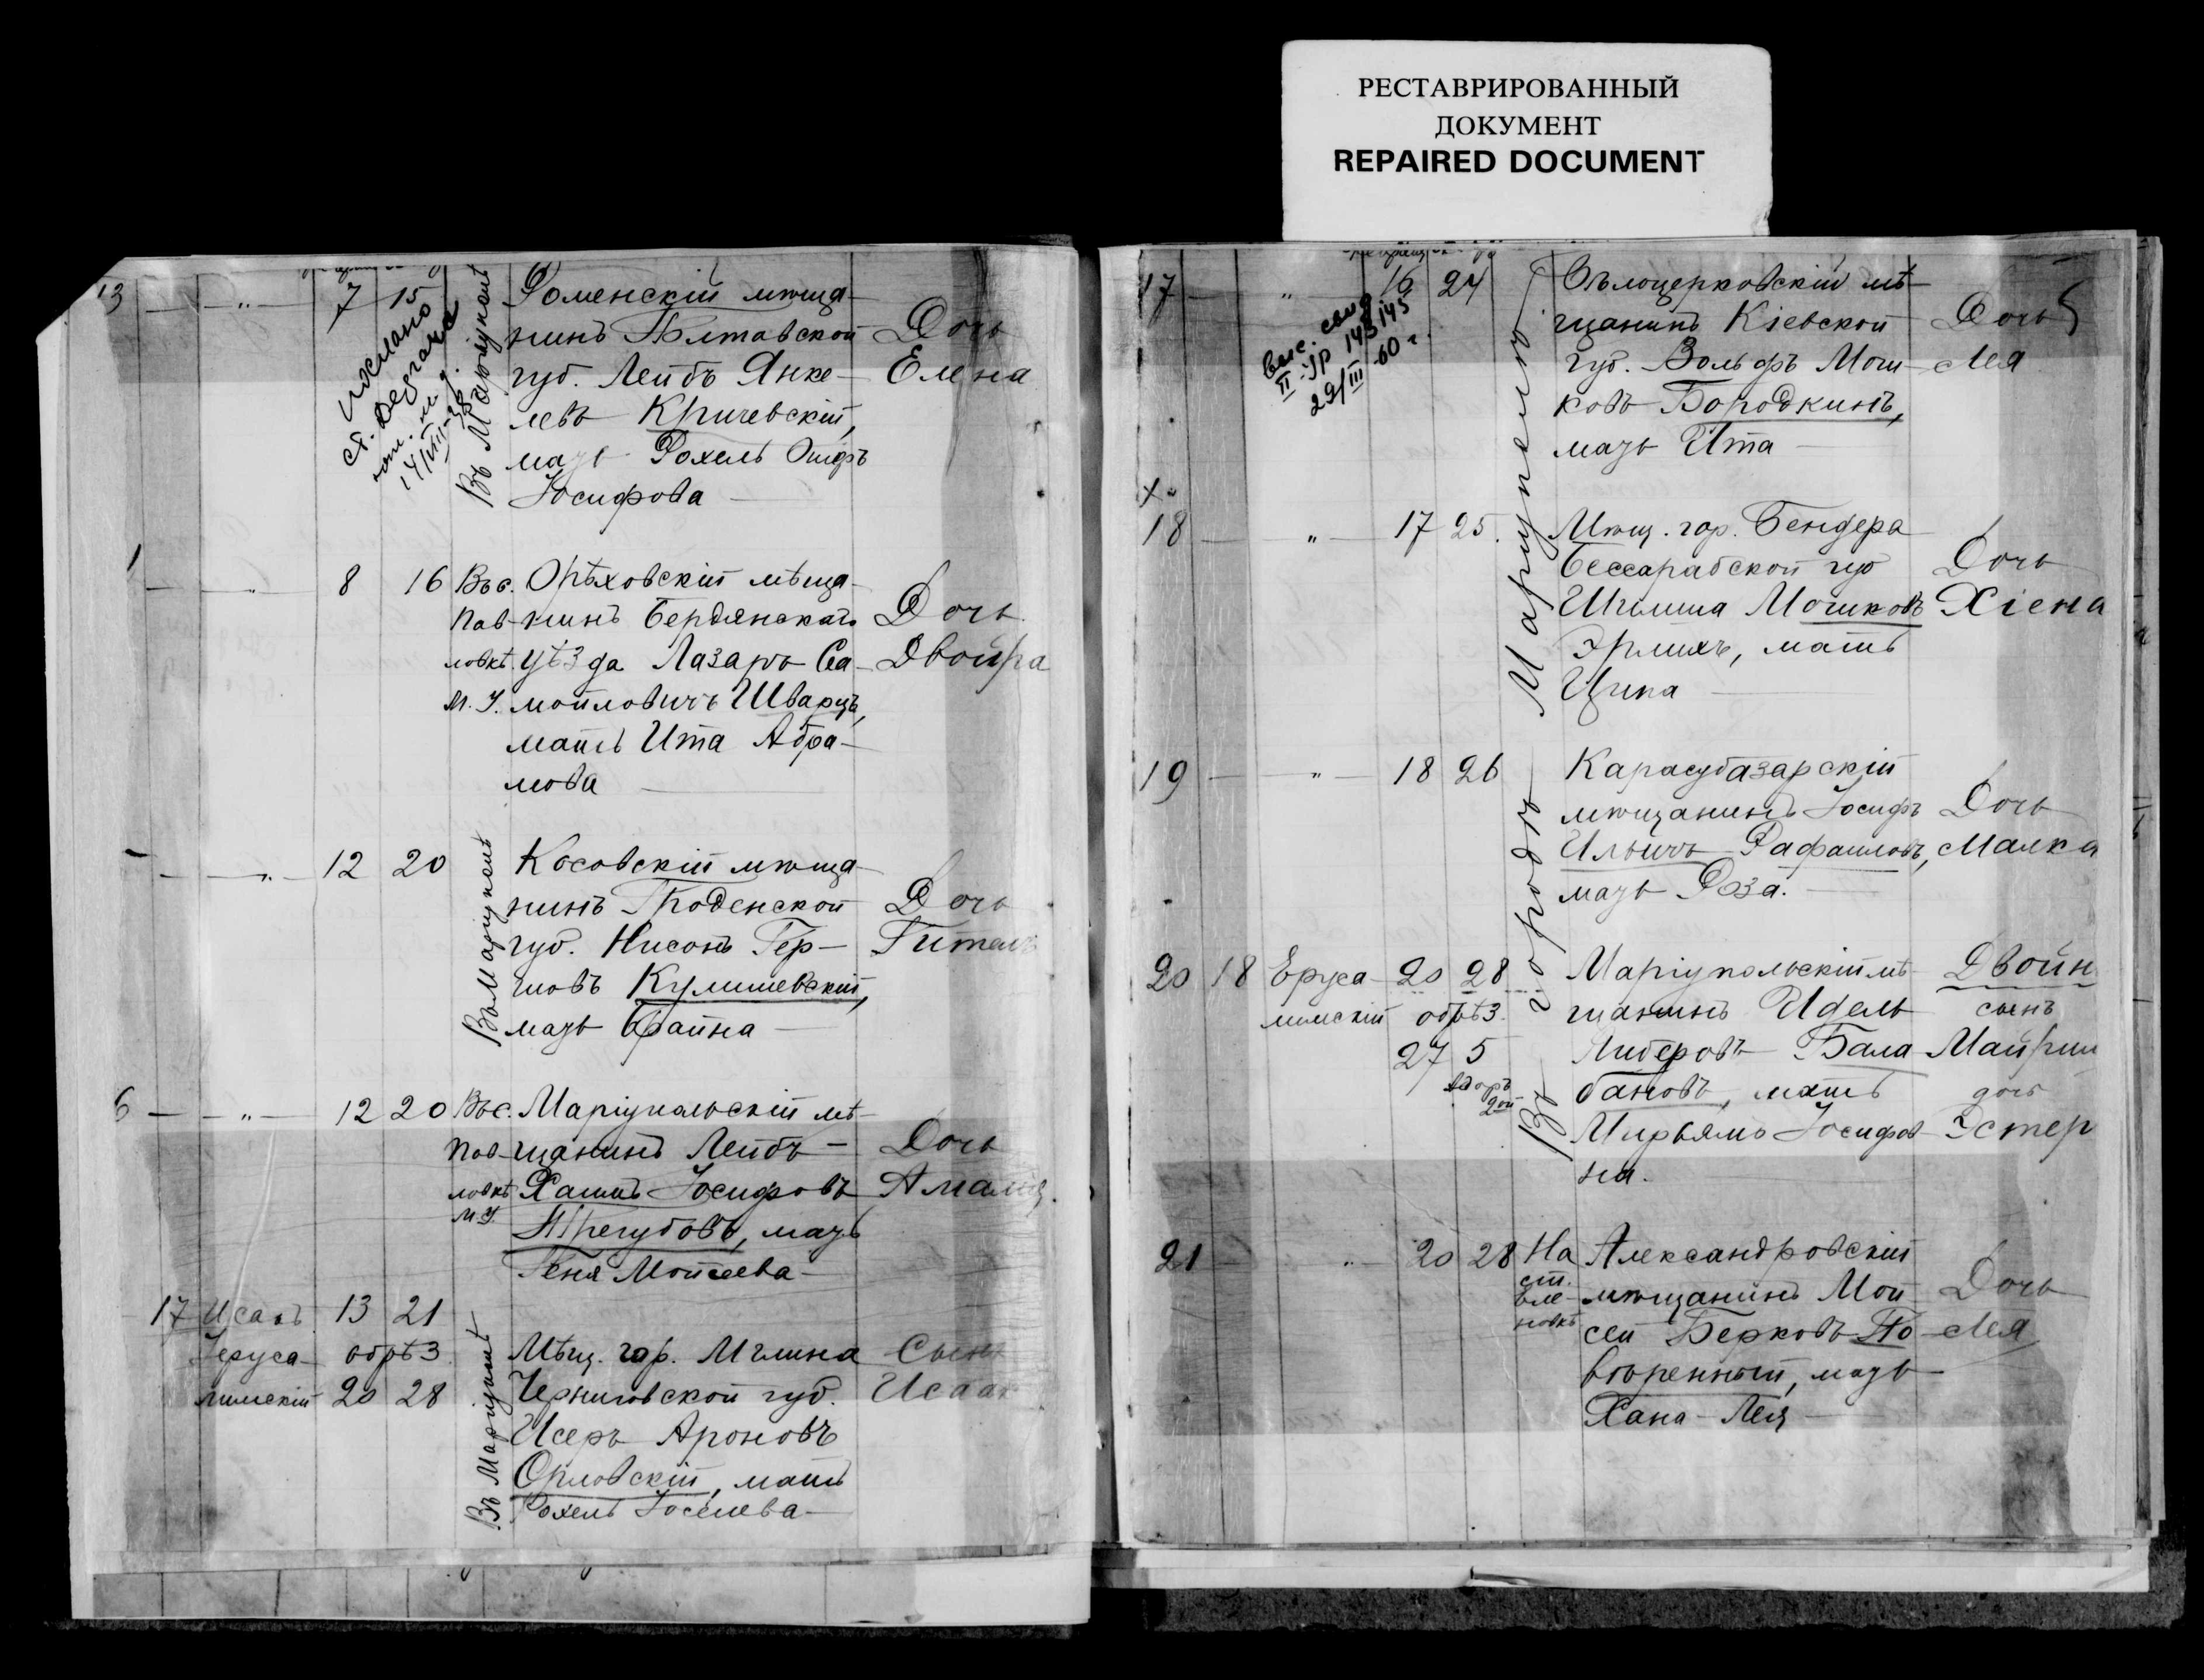 РЕСТАВРИРОВАННЫЙ
ДОКУМЕНТ
REPAIRED DOCUMENT
13 — „ — 7 15 Въ Маріуполѣ
послано
Роменскій мѣща-
нинъ Полтавской
губ. Лейбъ Янке-
левъ Кричевскій,
мать Рохель
Іосифова —
Дочь
Елена
— „ — 8 16 Въ с.
Пав-
ловкѣ
М. У.
Орѣховскій мѣща-
нинъ Бердянскаго
уѣзда Лазарь Са-
мойловичъ Шварцъ,
мать Ита Абра-
мова —
Дочь
Двойра
— „ — 12 20 Въ Маріуполѣ
Косовскій мѣща-
нинъ Гродненской
губ. Нисонъ Гер-
шовъ Кулишевскій,
мать Брайна —
Дочь
Гитель
6 — „ — 12 20 Въ с.
Пав-
ловкѣ
М. У.
Маріупольскій мѣ-
щанинъ Лейбъ-
Хаимъ Іосифовъ
Трегубовъ, мать
Геня Мойсеева —
Дочь
Амалія.
17 Исаакъ 13 21
Іеруса- обрѣз
лимскій 20 28
Въ Маріуполѣ
Мѣщ. гор. Мглина
Черниговской губ.
Исеръ Ароновъ
Орловскій, мать
Рохель Іоселева —
Сынъ
Исаакъ
17 — „ — 16 24
29/III 60 г.
Въ городѣ Маріуполѣ
Бѣлоцерковскій мѣ-
щанинъ Кіевской
губ. Вольфъ Мош-
ковъ Бородкинъ,
мать Ита —
Дочь
Лея
18 — „ — 17 25.
Мѣщ. гор. Бендера
Бессарабской губ
Шлёма Мошковъ
Эрлихъ, мать
Ципа —
Дочь
Хіена
19 — „ — 18 26
Карасубазарскій
мѣщанинъ Іосифъ
Ильичъ Рафаиловъ,
мать Роза. —
Дочь
Малка
20 18 Еруса- 20 28
лимскій обрѣз.
27 5
Маріупольскій мѣ-
щанинъ Идель
Либеровъ Бала-
бановъ, мать
Мирьямъ Іосифов-
на.
Двойн
сынъ
дочь
Эстер
21 — „ — 20 28 На
ст.
Еле-
новкѣ
Александровскій
мѣщанинъ Мой
сей Берковъ По-
вѣренный, мать
Хана-Лея —
Дочь
Лея